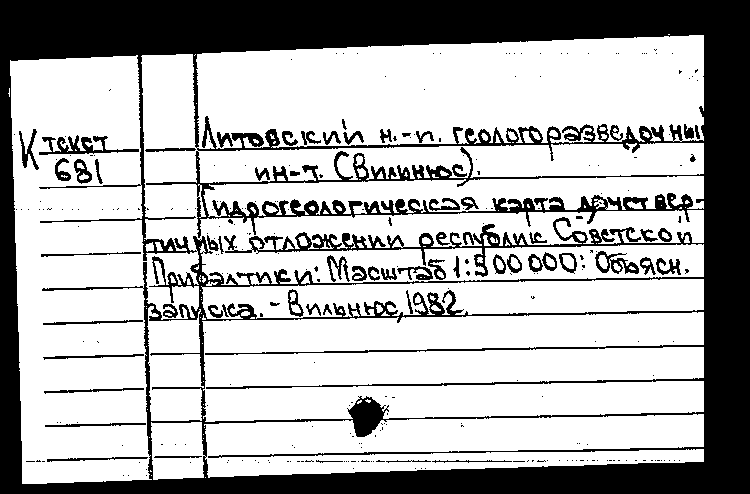 К текст
681
Литовский н.-и. геологоразведочный
ин-т. (Вильнюс).
Гидрогеологическая карта дочетвер-
тичных отложений республик Советской
Прибалтики: Масштаб 1:500 000: Объясн.
записка. - Вильнюс, 1982.